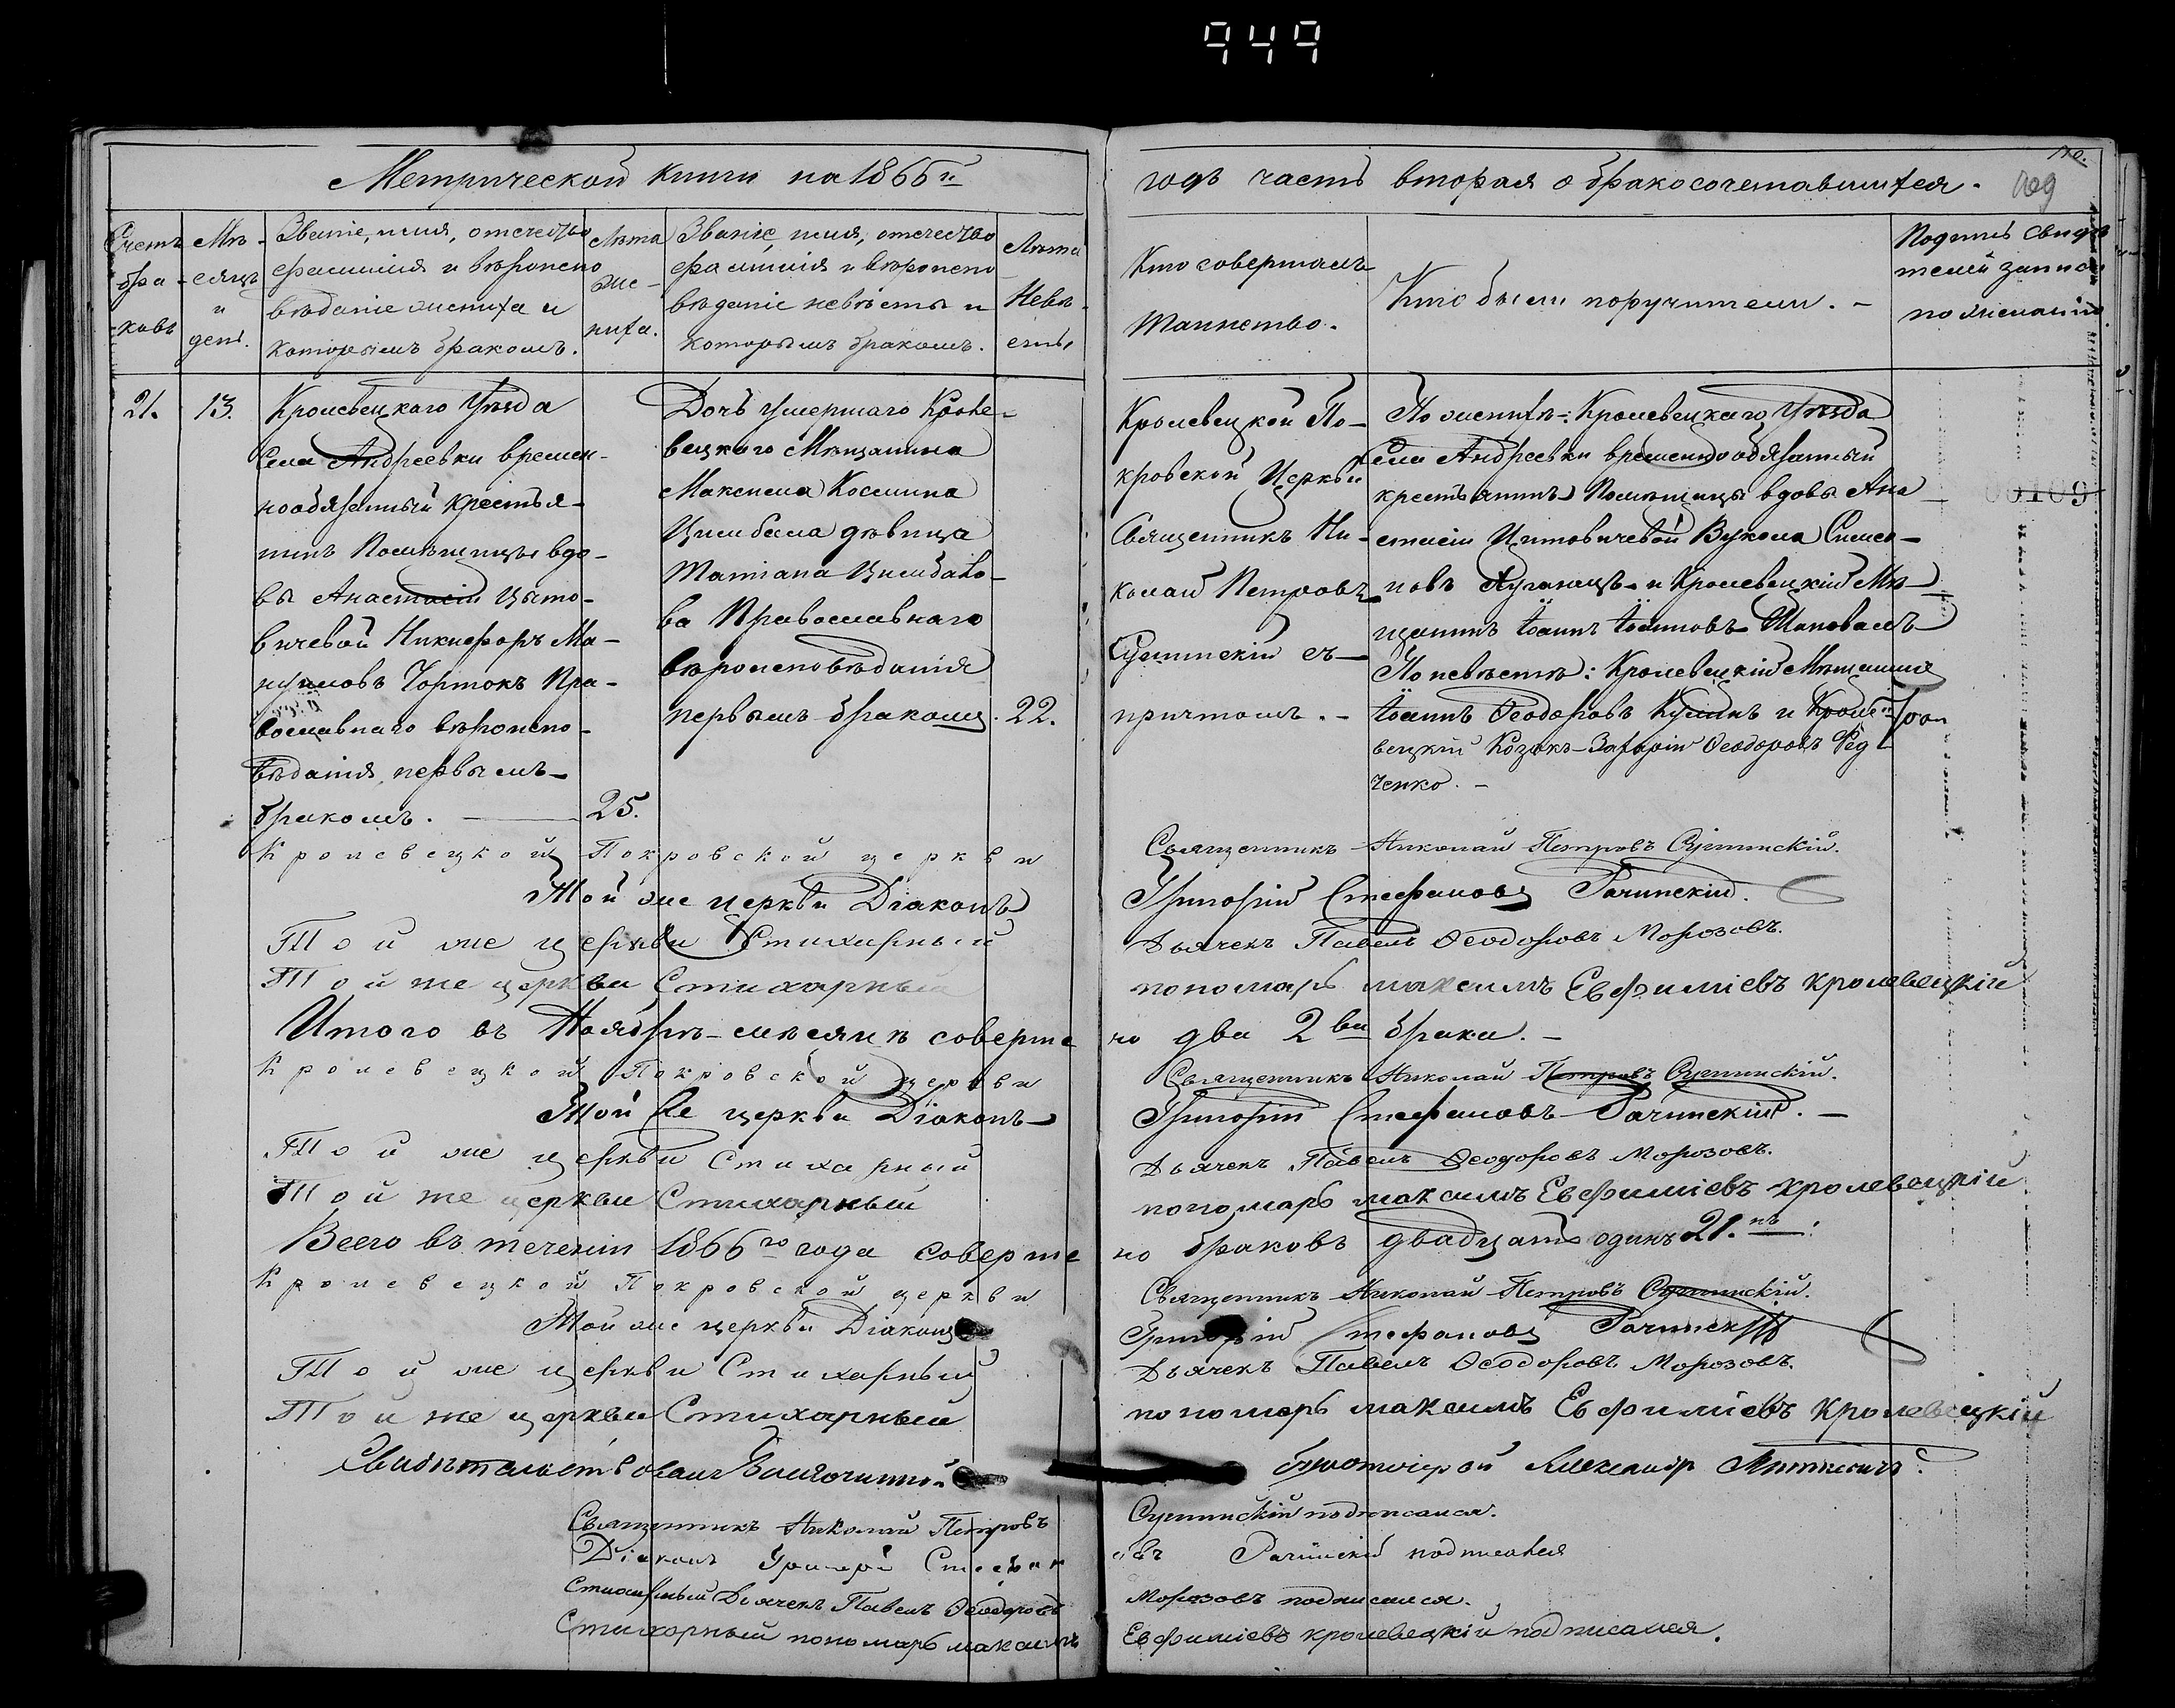 949
Метрической книги на 1866й
годъ часть вторая о бракосочетавшихся.
110.
109
Счетъ браковъ
Мѣсяцъ и день.
Званіе, имя, отчество
фамилія и вѣроиспо
вѣданіе жениха и
которымъ бракомъ.
Лѣта
же-
ниха.
Званіе, имя, отчество
фамилія и вѣроиспо
вѣданіе невѣсты и
которымъ бракомъ.
Лѣта
Невѣ-
сты
Кто совершалъ
Таинство.
Кто были поручители. -
Подпись свидѣ
телей записи
по желанію.
21.
13.
Кролевецкаго Уѣзда
Села Андреевки времен-
нообязанный Крестья-
нинъ Помѣщицы вдо-
вы Анастасіи Цыто-
вичевой Никифоръ Ма-
Чортокъ Пра-
вославнаго вѣроиспо-
вѣданія, первымъ
бракомъ. 25.
Дочь умершаго Кроле-
вецкаго Мѣщанина
Максима Космина
Цимбала дѣвица
Татіана Цимбало-
ва Православнаго
вѣроисповѣданія
первымъ бракомъ. 22.
Кролевецкой По-
кровской Церкви
Священникъ Ни-
колай Петровъ
съ
причтомъ. -
По женихѣ: Кролевецкаго Уѣзда
Села Андреевки временнообязанный
крестьянинъ Помѣщицы вдовы Ана-
стасіи Цитовичевой Вукола Симео-
новъ и Кролевецкій Мѣ-
щанинъ Іоаннъ Іоанновъ Шаповалъ
По невѣстѣ: Кролевецкій Мѣщанинъ
Іоаннъ Ѳеодоровъ и Кроле-
вецкій Козакъ Захарій Ѳеодоровъ Фед
ченко. -
00109
Кролевецкой Покровской церкви
Священникъ Николай Петровъ
Той же церкви Діаконъ
Григорій Стефановъ Рачинскій.
Той же церкви Стихарный
Дьячекъ Павелъ Ѳеодоровъ Морозовъ.
Той же церкви Стихарный
пономарь максимъ Евфиміевъ кролевецкій
Итого въ Ноябрѣ мѣсяцѣ соверше
но два 2ва брака. -
Кролевецкой Покровской церкви
Священникъ Николай Петровъ
Той же церкви Діаконъ
Григорій Стефановъ Рачинскій. -
Той же церкви Стихарный
Дьячекъ Павелъ Ѳеодоровъ Морозовъ.
Той же церкви Стихарный
пономарь максимъ Евфиміевъ кролевецкій
Всего въ теченіи 1866го года соверше
но браковъ двадцать одинъ 21.нъ
Кролевецкой Покровской церкви
Священникъ Николай Петровъ
Той же церкви Діаконъ
Григорій Стефановъ Рачинскій
Той же церкви Стихарный
Дьячекъ Павелъ Ѳеодоровъ Морозовъ.
Той же церкви Стихарный
пономарь максимъ Евфиміевъ кролевецкій
Свидѣтельствовалъ Благочинный
Александръ
Священникъ Николай Петровъ
подписался.
Діаконъ Григорій Стефан
овъ Рачинскій подписался
Стихарный Дьячекъ Павелъ Ѳеодоровъ
Морозовъ подписался.
Стихарный пономарь максимъ
Евфиміевъ кролевецкій подписался.